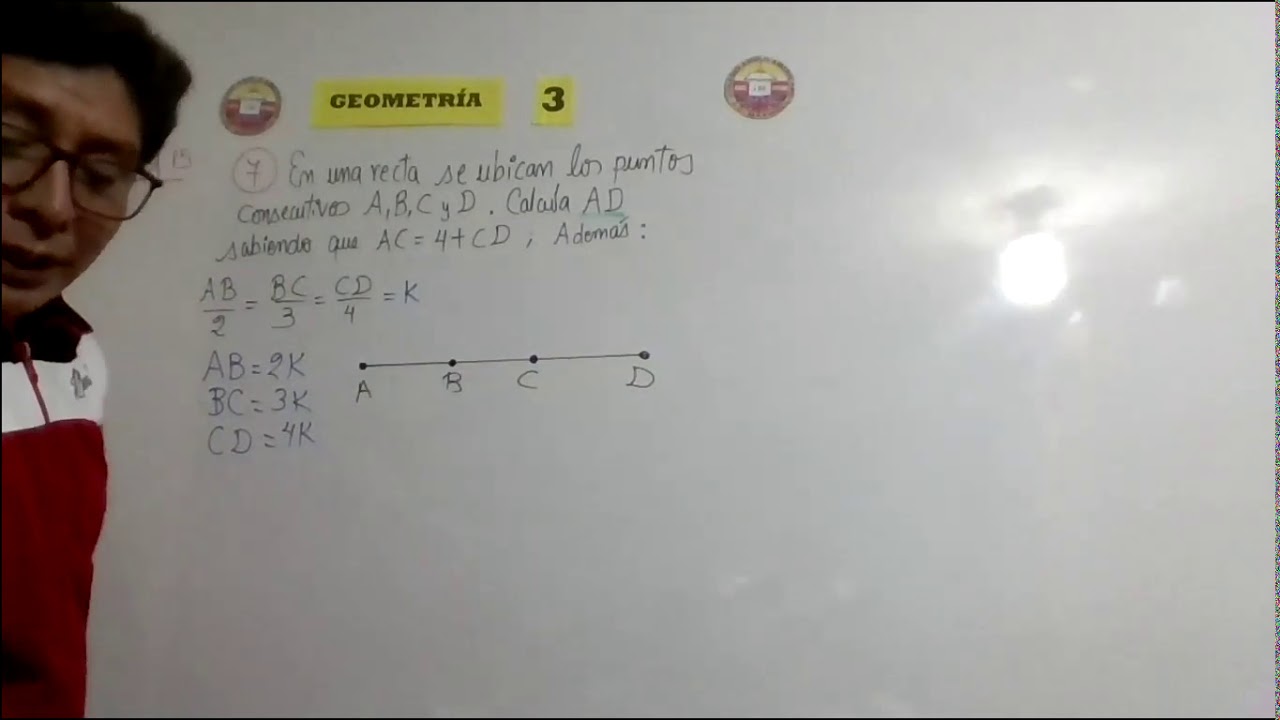 GEOMETRÍA 3
7 En una recta se ubican los puntos
consecutivos A, B, C y D. Calcula AD
sabiendo que AC = 4 + CD ; Además:
AB/2 = BC/3 = CD/4 = K
AB = 2K
BC = 3K
CD = 4K
A B C D